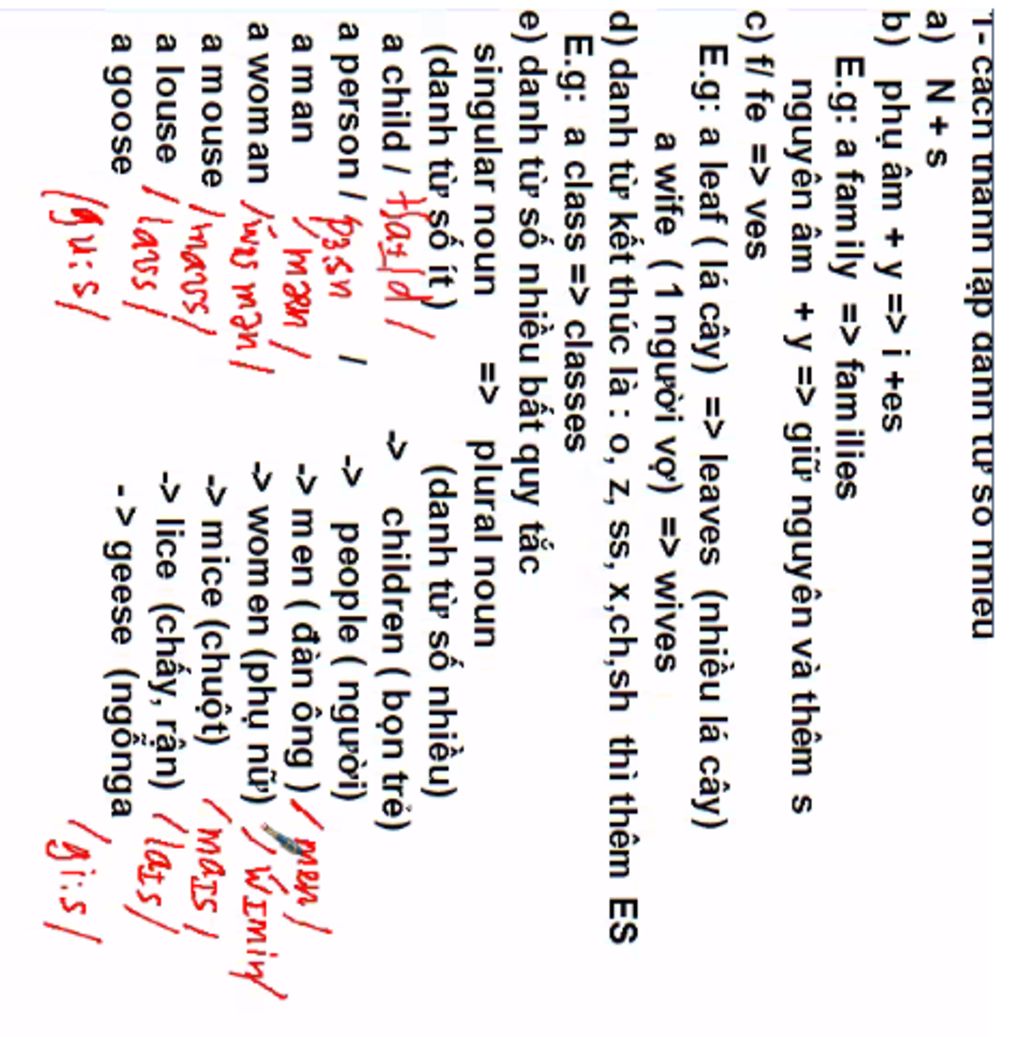 1- cách thành lập danh từ số nhiều
a) N + s
b) phụ âm + y => i +es
E.g: a family => families
nguyên âm + y => giữ nguyên và thêm s
c) f/ fe => ves
E.g: a leaf ( lá cây) => leaves (nhiều lá cây)
a wife ( 1 người vợ) => wives
d) danh từ kết thúc là : o, z, ss, x,ch,sh thì thêm ES
E.g: a class => classes
e) danh từ số nhiều bất quy tắc
singular noun => plural noun
(danh từ số ít ) (danh từ số nhiều)
a child / tʃaɪld / -> children ( bọn trẻ)
a person / pɜ:sn / -> people ( người)
a man / mæn / -> men ( đàn ông ) / men /
a woman /'wʊmən / -> women (phụ nữ) /'wɪmin/
a mouse /maʊs/ -> mice (chuột) / maɪs /
a louse / laʊs / -> lice (chấy, rận) / laɪs /
a goose /gu:s / - > geese (ngỗnga / gi:s /